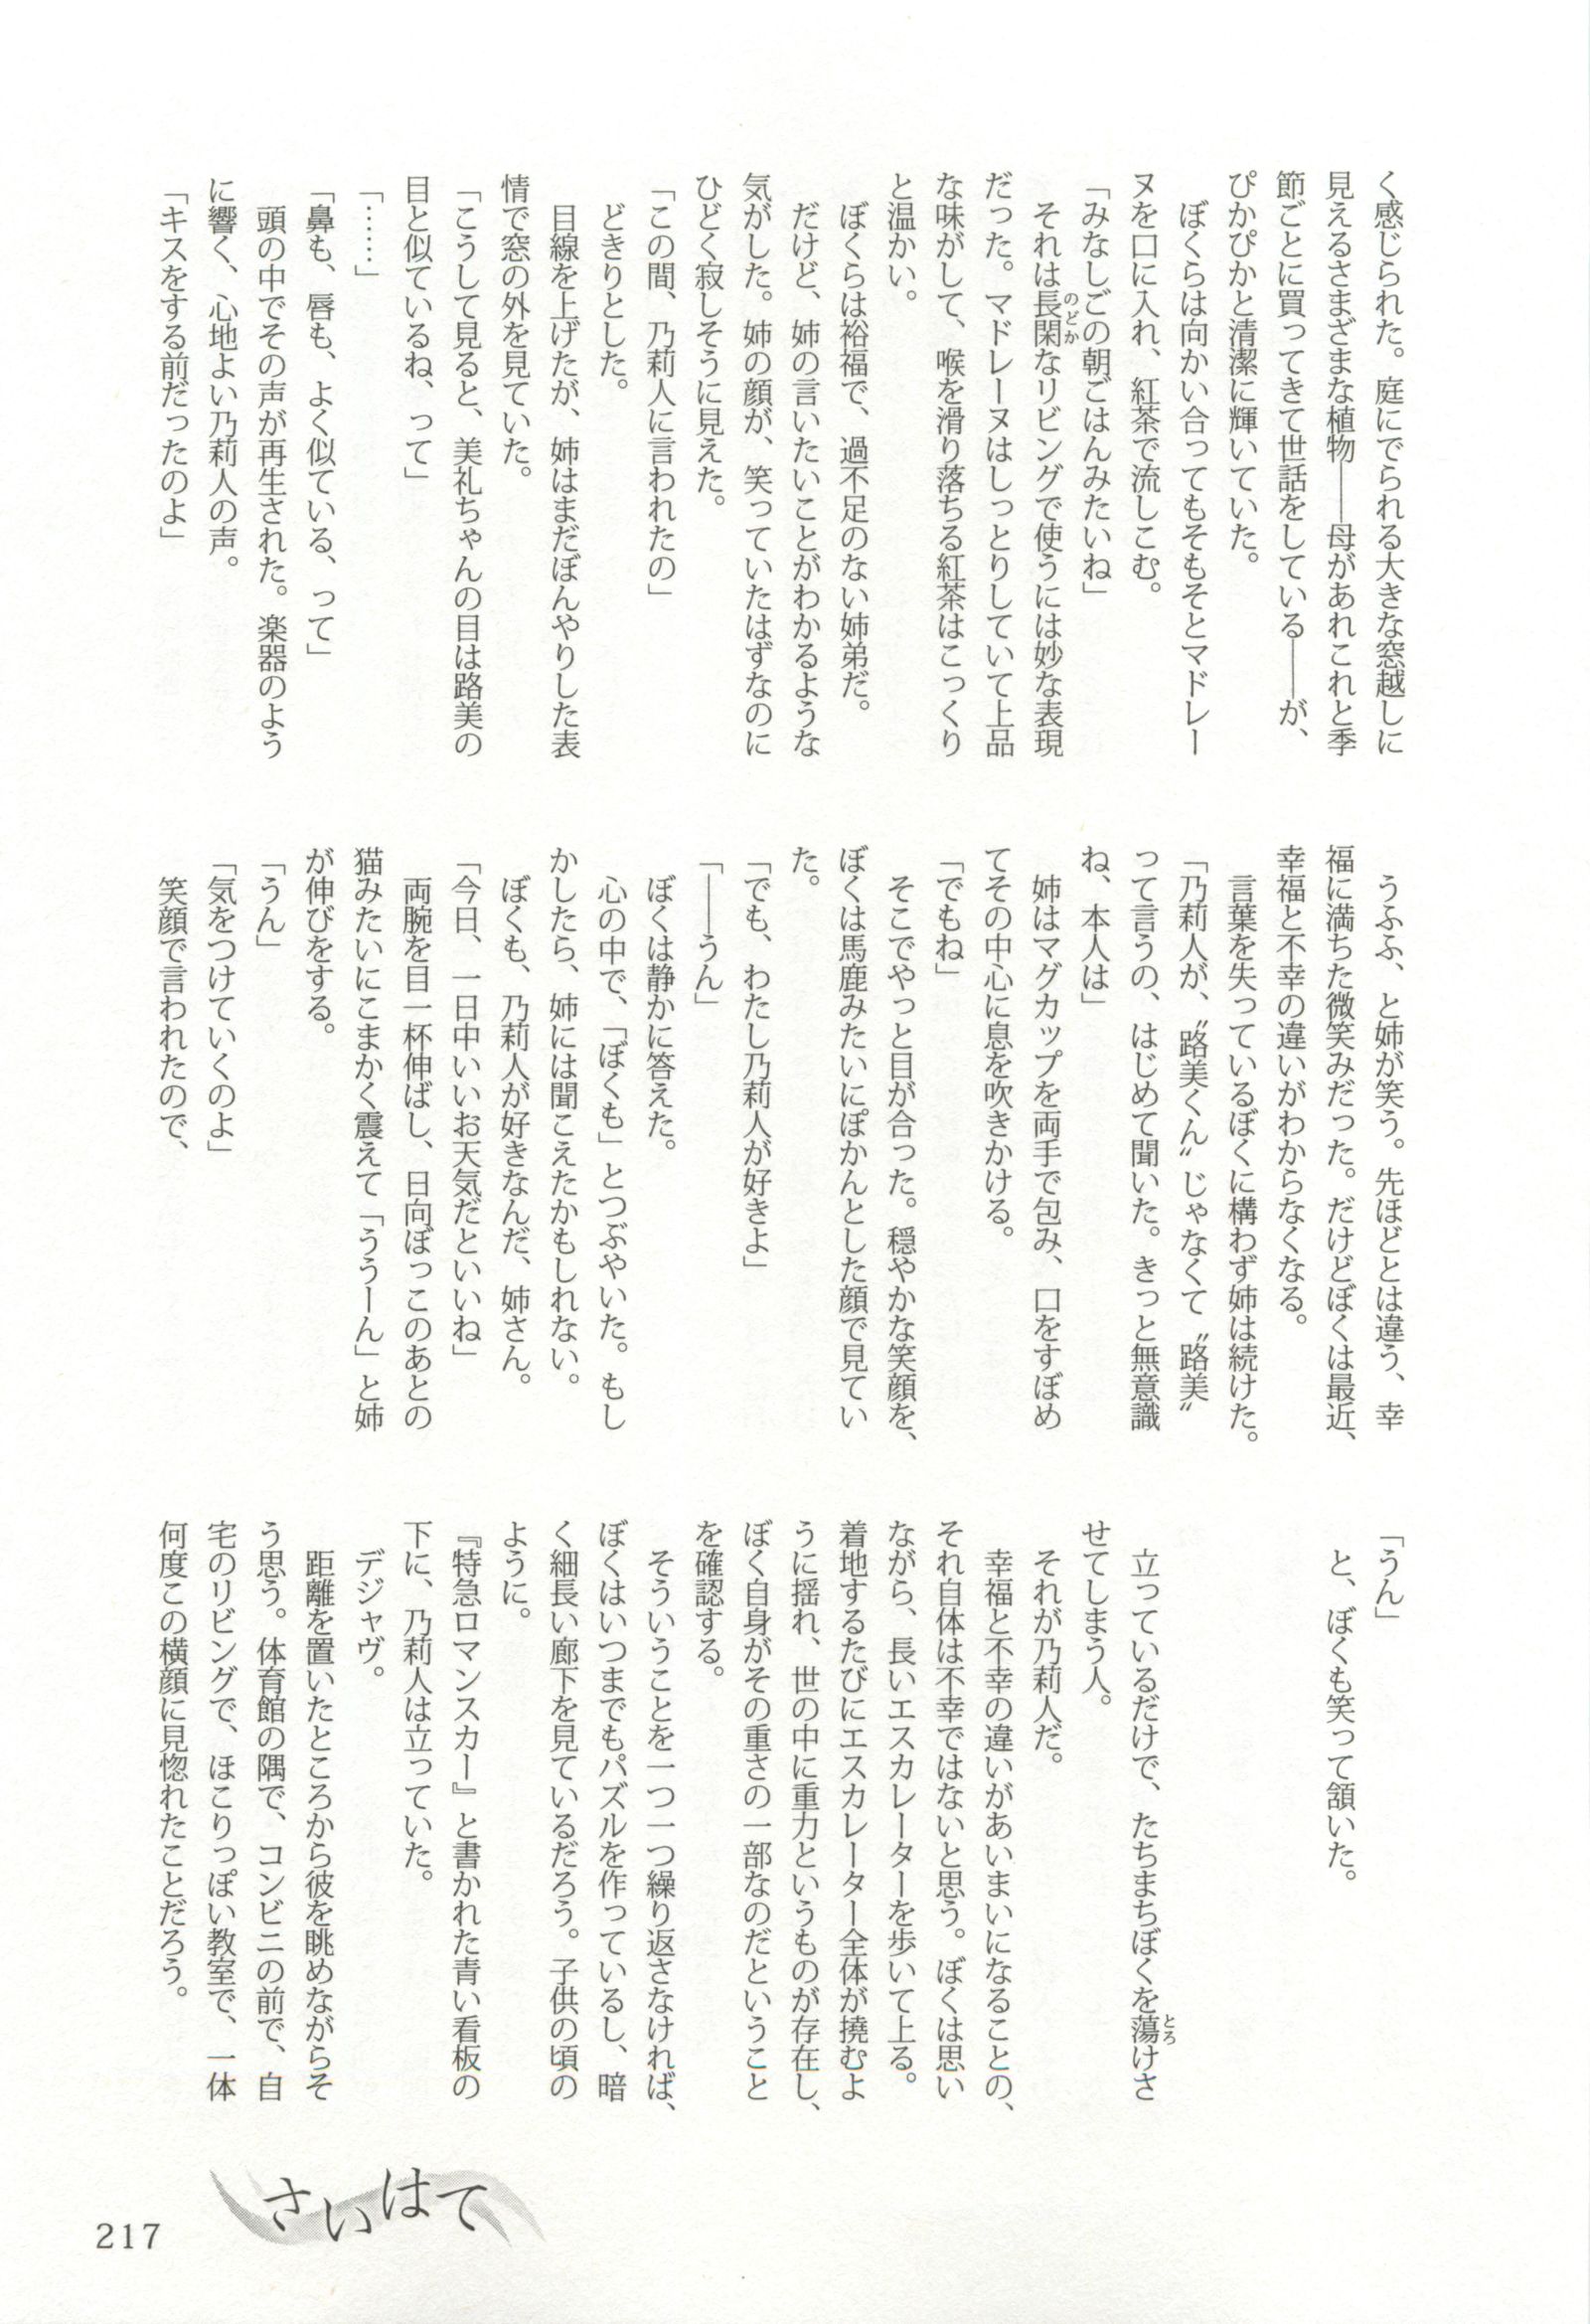 く感じられた。庭にでられる大きな窓越しに
見えるさまざまな植物――母があれこれと季
節ごとに買ってきて世話をしている――が、
ぴかぴかと清潔に輝いていた。
　ぼくらは向かい合ってもそもそとマドレー
ヌを口に入れ、紅茶で流しこむ。
「みなしごの朝ごはんみたいね」
　それは長閑なリビングで使うには妙な表現
のどか
だった。マドレーヌはしっとりしていて上品
な味がして、喉を滑り落ちる紅茶はこっくり
と温かい。
　ぼくらは裕福で、過不足のない姉弟だ。
　だけど、姉の言いたいことがわかるような
気がした。姉の顔が、笑っていたはずなのに
ひどく寂しそうに見えた。
「この間、乃莉人に言われたの」
　どきりとした。
　目線を上げたが、姉はまだぼんやりした表
情で窓の外を見ていた。
「こうして見ると、美礼ちゃんの目は路美の
目と似ているね、って」
「……」
「鼻も、唇も、よく似ている、って」
　頭の中でその声が再生された。楽器のよう
に響く、心地よい乃莉人の声。
「キスをする前だったのよ」
　うふふ、と姉が笑う。先ほどとは違う、幸
福に満ちた微笑みだった。だけどぼくは最近、
幸福と不幸の違いがわからなくなる。
　言葉を失っているぼくに構わず姉は続けた。
「乃莉人が、〝路美くん〟じゃなくて〝路美〟
って言うの、はじめて聞いた。きっと無意識
ね、本人は」
　姉はマグカップを両手で包み、口をすぼめ
てその中心に息を吹きかける。
「でもね」
　そこでやっと目が合った。穏やかな笑顔を、
ぼくは馬鹿みたいにぽかんとした顔で見てい
た。
「でも、わたし乃莉人が好きよ」
「――うん」
　ぼくは静かに答えた。
　心の中で、「ぼくも」とつぶやいた。もし
かしたら、姉には聞こえたかもしれない。
　ぼくも、乃莉人が好きなんだ、姉さん。
「今日、一日中いいお天気だといいね」
　両腕を目一杯伸ばし、日向ぼっこのあとの
猫みたいにこまかく震えて「ううーん」と姉
が伸びをする。
「うん」
「気をつけていくのよ」
　笑顔で言われたので、
「うん」
　と、ぼくも笑って頷いた。
　立っているだけで、たちまちぼくを蕩けさ
とろ
せてしまう人。
　それが乃莉人だ。
　幸福と不幸の違いがあいまいになることの、
それ自体は不幸ではないと思う。ぼくは思い
ながら、長いエスカレーターを歩いて上る。
着地するたびにエスカレーター全体が撓むよ
うに揺れ、世の中に重力というものが存在し、
ぼく自身がその重さの一部なのだということ
を確認する。
　そういうことを一つ一つ繰り返さなければ、
ぼくはいつまでもパズルを作っているし、暗
く細長い廊下を見ているだろう。子供の頃の
ように。
『特急ロマンスカー』と書かれた青い看板の
下に、乃莉人は立っていた。
　デジャヴ。
　距離を置いたところから彼を眺めながらそ
う思う。体育館の隅で、コンビニの前で、自
宅のリビングで、ほこりっぽい教室で、一体
何度この横顔に見惚れたことだろう。
さいはて
217